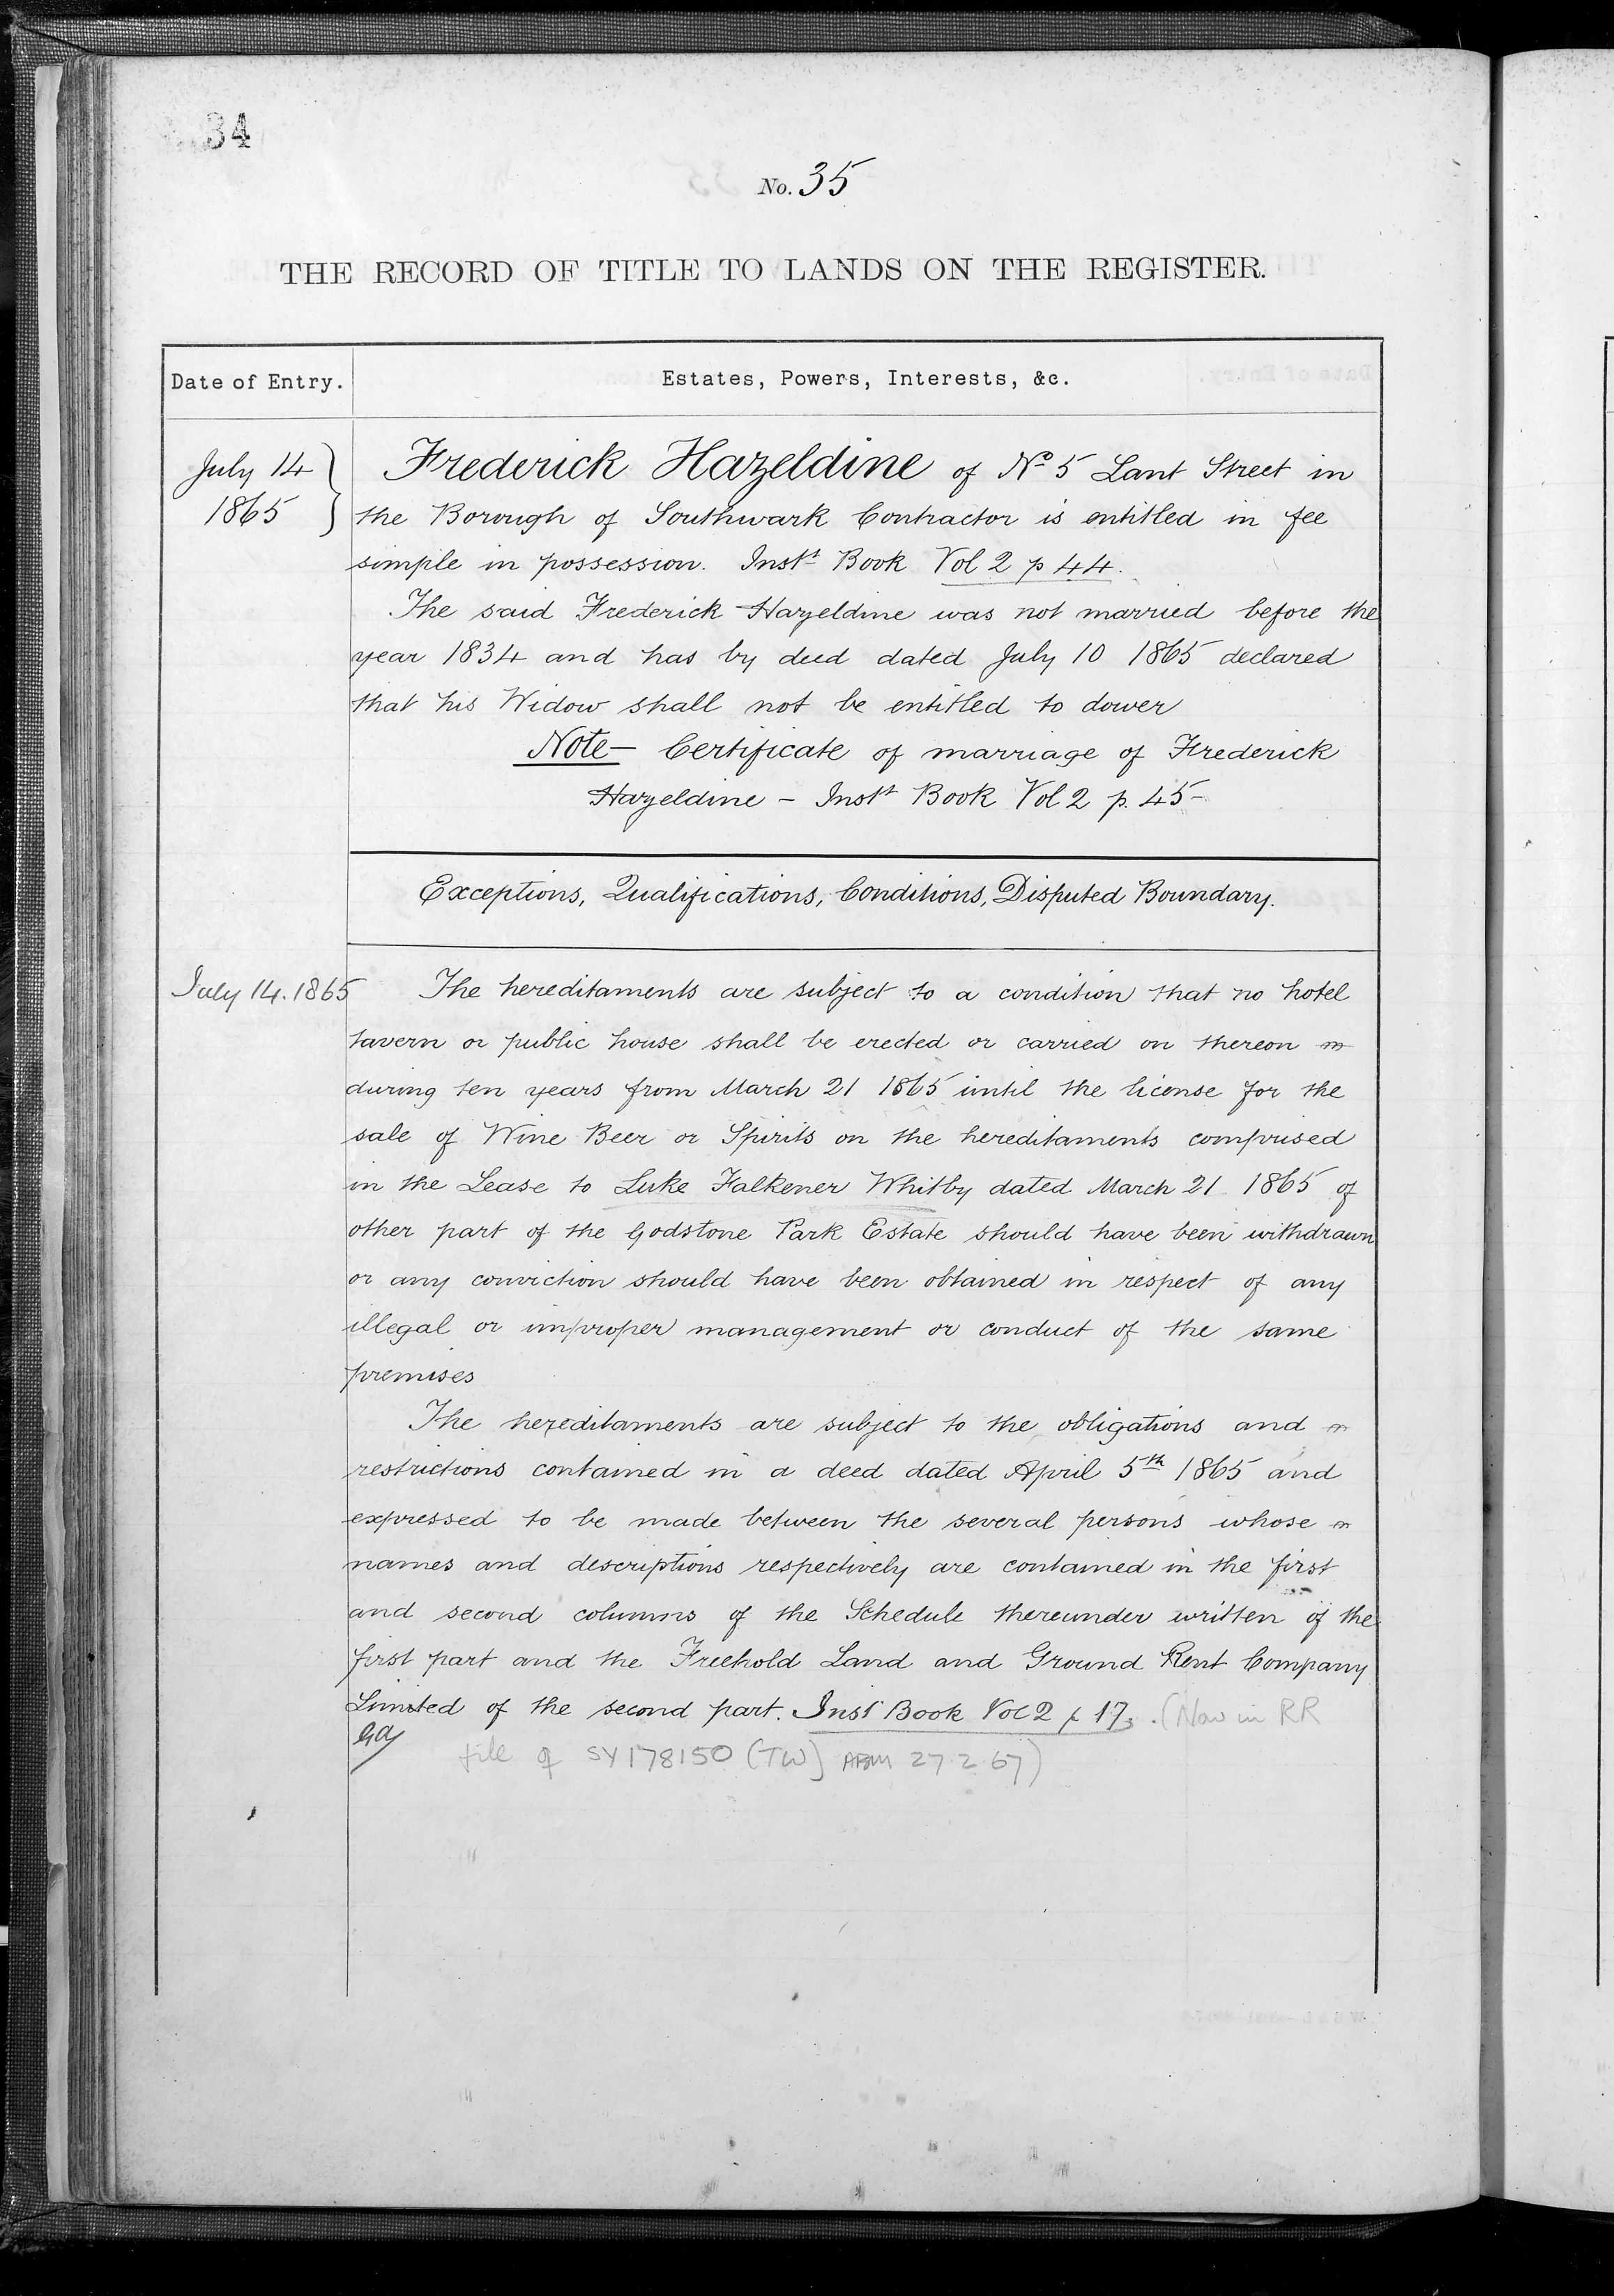 34
No. 35
THE RECORD OF TITLE TO LANDS ON THE REGISTER.
Date of Entry.
Estates, Powers, Interests, &c.
July 14
1865
Frederick Hazeldine of No 5 Lant Street in
the Borough of Southwark Contractor is entitled in fee
simple in possession. Inst Book Vol 2 p 44.
The said Frederick Hazeldine was not married before the
year 1834 and has by deed dated July 10 1865 declared
that his Widow shall not be entitled to dower
Note - Certificate of marriage of Frederick
Hazeldine - Inst Book Vol 2 p. 45 -
Exceptions, Qualifications, Conditions, Disputed Boundary.
July 14. 1865
The hereditaments are subject to a condition that no hotel
tavern or public house shall be erected or carried on thereon
during ten years from March 21 1865 until the license for the
sale of Wine Beer or Spirits on the hereditaments comprised
in the Lease to Luke Falkener Whitby dated March 21 1865 of
other part of the Godstone Park Estate should have been withdrawn
or any conviction should have been obtained in respect of any
illegal or improper management or conduct of the same
premises
The hereditaments are subject to the obligations and
restrictions contained in a deed dated April 5th 1865 and
expressed to be made between the several persons whose
names and descriptions respectively are contained in the first
and second columns of the Schedule thereunder written of the
first part and the Freehold Land and Ground Rent Company
Limited of the second part. Inst Book Vol 2 p 17. (Now in RR
file of SY178150 (TW) 27.2.67)